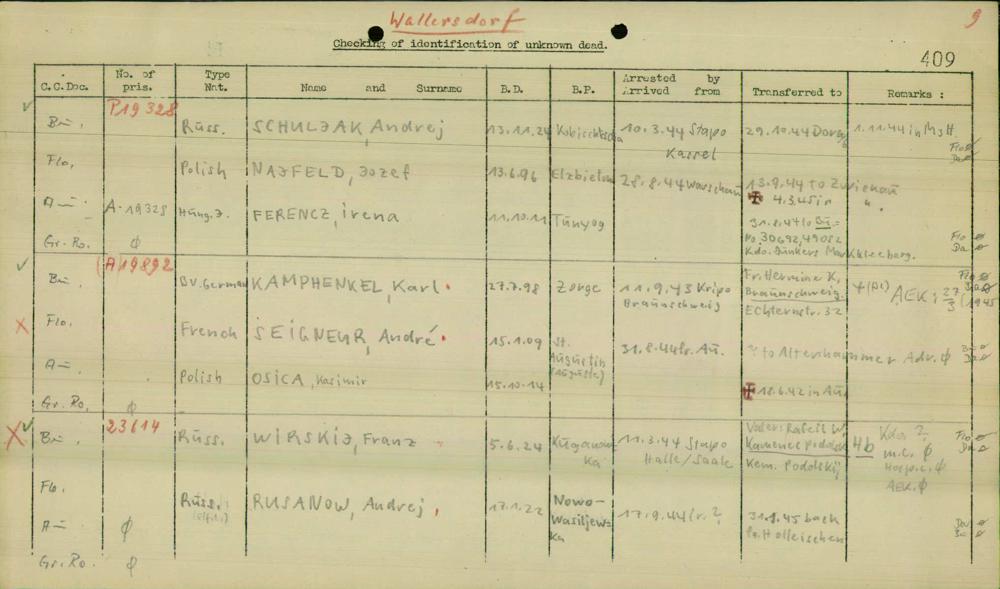 Wallersdorf
9
Checking of identification of unknown dead.
409
C.C.Doc. No. of pris. Type Nat. Name and Surname B.D. B.P. Arrested by Arrived from Transferred to Remarks :
P19328
Bu. Russ. SCHULJAK, Andrej 13.11.24 10.3.44 Stapo Kassel 29.10.44 Dora 1.11.44 in
Flo. Polish NAJFELD, Jozef 13.6.96 Elzbieton 28.8.44 Warschau 13.9.44 to Zwickau
4.3.45 in ".
Au A-19328 Hung.J. FERENCZ, irena 11.10.11 Tunyog 31.8.44 to Bu =
No 30692, 49052
Kdo. Junkers Markkleeberg.
Flo ø
Da ø
Gr. Ro. ø
A19892
Bu. BV. German KAMPHENKEL, Karl. 27.7.98 Zorge 11.9.43 Kripo Braunschweig Fr. Hermine K,
Braunschweig.
Echternstr. 32
AEK: 27/3 (1945
Flo. French SEIGNEUR, André. 15.1.09 St. Augustin 31.8.44 fr. Au. ? to Alterhammer Adr. ø
Au Polish OSICA, Kasimir 15.10.14 18.6.42 in Au
Gr. Ro. ø
23614
Bu. Russ. WIRSKIJ, Franz 5.6.24 11.3.44 Stapo Halle/Saale Vater: Rafeil W,
Kamenec Podolsk
Kem. Podolskij
4b
Kda ?
m.c. ø
Hosp.c. ø
AEK. ø
Flo ø
Da ø
Flo. Russ. RUSANOW, Andrej. 17.1.22 Nowo-Wasiljewka 17.9.44 fr. ? 31.1.45 back
to Holleischen
Au ø
Gr. Ro. ø